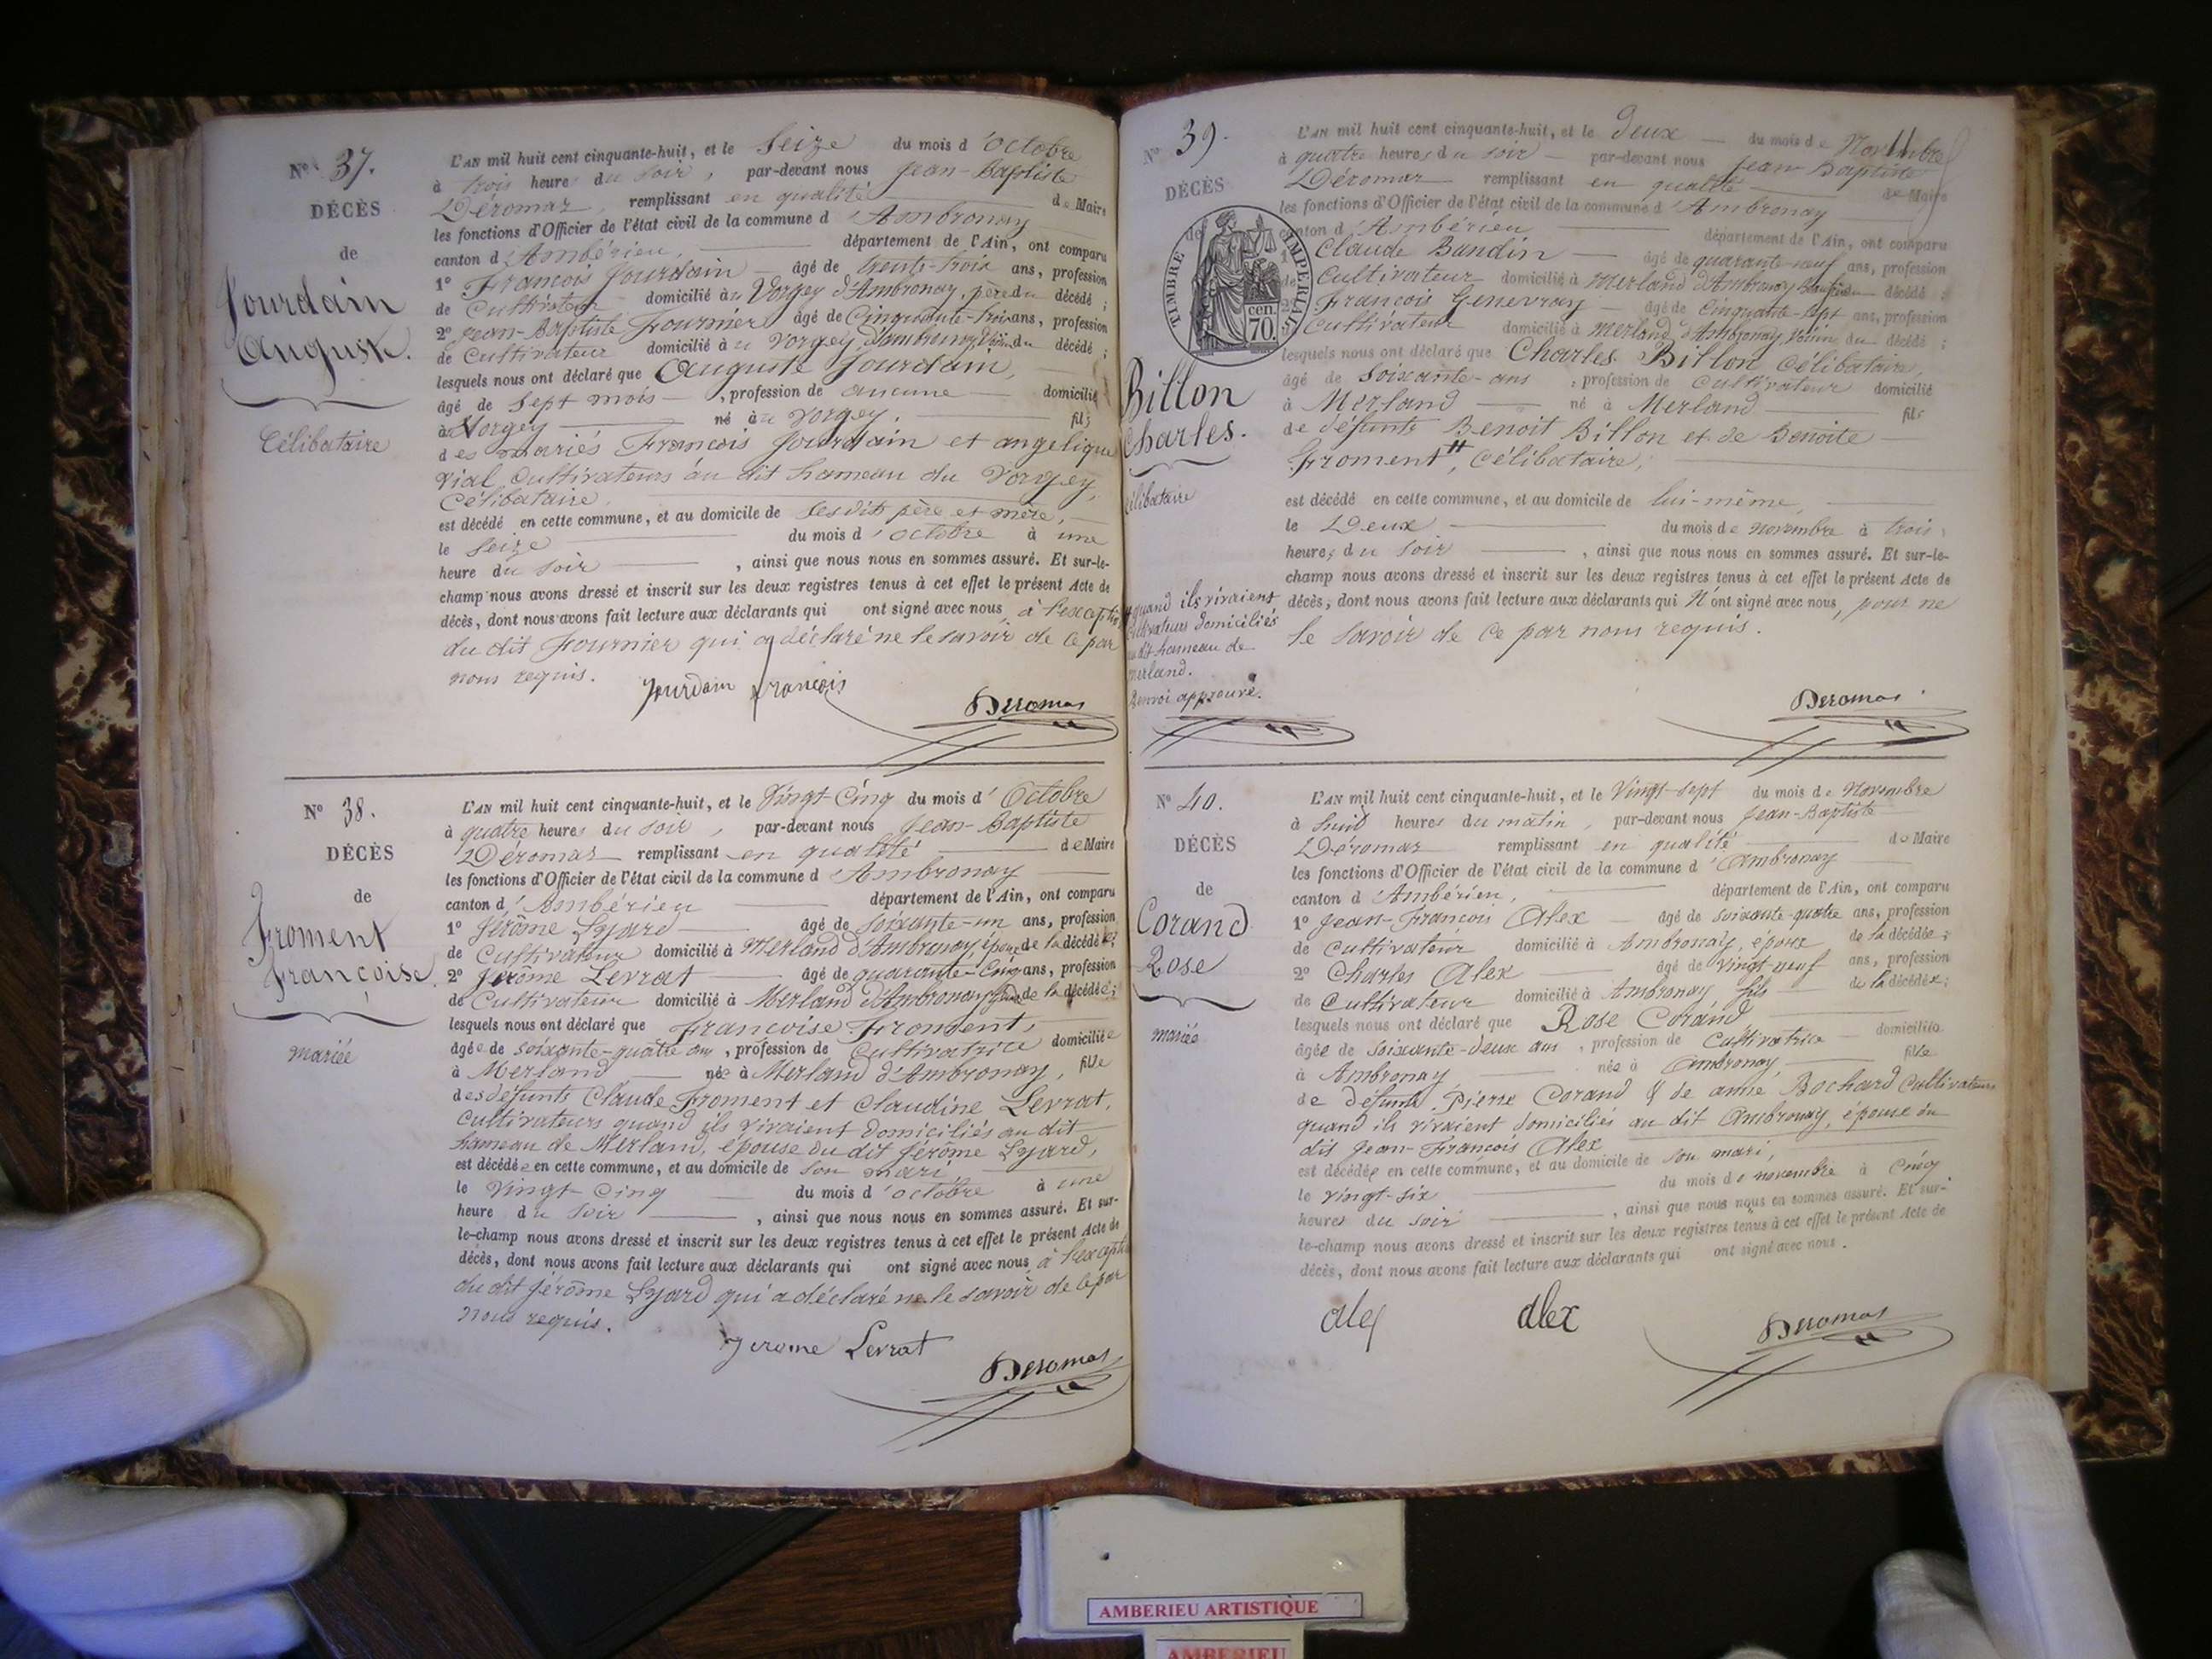 N° 37.
DÉCÈS
de
Jourdain
Auguste.
Célibataire
L'AN mil huit cent cinquante-huit, et le Seize du mois d'Octobre
à trois heures du soir, par-devant nous Jean-Baptiste
Déromas, remplissant en qualité de Maire
les fonctions d'Officier de l'état civil de la commune d'Ambronay
canton d'Ambérieu, département de l'Ain, ont comparu
1° François Jourdain âgé de trente-trois ans, profession
de Cultivateur domicilié au Vorgey d'Ambronay, père du décédé ;
2° Jean-Baptiste Fournier âgé de Cinquante-trois ans, profession
de Cultivateur domicilié au Vorgey d'Ambronay, voisin du décédé ;
lesquels nous ont déclaré que Auguste Jourdain,
âgé de Sept mois, profession de aucune domicilié
au Vorgey né au Vorgey. fils
des mariés François Jourdain et angelique
Vial Cultivateurs au dit hameau du Vorgey,
Célibataire.
est décédé en cette commune, et au domicile de Sesdits père et mère,
le Seize du mois d'octobre à une
heure du Soir, ainsi que nous nous en sommes assuré. Et sur-le-
champ nous avons dressé et inscrit sur les deux registres tenus à cet effet le présent Acte de
décès, dont nous avons fait lecture aux déclarants qui ont signé avec nous, à l'exception
du dit Fournier qui a déclaré ne le savoir de ce par
nous requis.
Jourdain françois
Deromas
N° 38.
DÉCÈS
de
Froment
Françoise.
mariée
L'AN mil huit cent cinquante-huit, et le Vingt-Cinq du mois d'Octobre
à quatre heures du soir, par-devant nous Jean-Baptiste
Déromas remplissant en qualité de Maire
les fonctions d'Officier de l'état civil de la commune d'Ambronay
canton d'Ambérieu département de l'Ain, ont comparu
1° Jérôme Lyard âgé de soixante-un ans, profession
de Cultivateur domicilié à Merland d'Ambronay, époux de la décédée;
2° Jérôme Levrat âgé de quarante-Cinq ans, profession
de Cultivateur domicilié à Merland d'Ambronay, de la décédée;
lesquels nous ont déclaré que Françoise Froment,
âgée de soixante-quatre ans, profession de Cultivatrice domiciliée
à Merland née à Merland d'Ambronay, fille
des défunts Claude Froment et Claudine Levrat,
Cultivateurs quand ils vivaient domiciliés au dit
hameau de Merland, épouse du dit Jérôme Lyard,
est décédée en cette commune, et au domicile de son mari
le Vingt-Cinq du mois d'octobre à une
heure du Soir, ainsi que nous nous en sommes assuré. Et sur-
le-champ nous avons dressé et inscrit sur les deux registres tenus à cet effet le présent Acte de
décès, dont nous avons fait lecture aux déclarants qui ont signé avec nous, à l'exception
du dit Jérôme Lyard qui a déclaré ne le savoir de ce par
nous requis.
Jerome Levrat
Deromas
N° 39.
DÉCÈS
de
TIMBRE IMPERIAL
70 cen.
Billon
Charles.
Célibataire
quand ils vivaient
Cultivateurs domiciliés
au dit hameau de
merland.
Renvoi approuvé.
L'AN mil huit cent cinquante-huit, et le Deux du mois de Novembre
à quatre heures du soir par-devant nous Jean Baptiste
Déromas remplissant en qualité de Maire
les fonctions d'Officier de l'état civil de la commune d'Ambronay
canton d'Ambérieu département de l'Ain, ont comparu
1° Claude Bandin âgé de quarante-neuf ans, profession
de Cultivateur domicilié à Merland d'Ambronay décédé ;
2° François Genevray âgé de Cinquante-sept ans, profession
Cultivateur domicilié à Merland d'Ambronay Voisin du décédé ;
lesquels nous ont déclaré que Charles Billon Célibataire,
âgé de Soixante-ans, profession de Cultivateur domicilié
à Merland né à Merland fils
de défunts Benoit Billon et de Benoite
Froment, Célibataire,
est décédé en cette commune, et au domicile de lui-même,
le Deux du mois de Novembre à trois
heures du Soir, ainsi que nous nous en sommes assuré. Et sur-le-
champ nous avons dressé et inscrit sur les deux registres tenus à cet effet le présent Acte de
décès, dont nous avons fait lecture aux déclarants qui N'ont signé avec nous, pour ne
le Savoir de Ce par nous requis.
Deromas
N° 40.
DÉCÈS
de
Corand
Rose
mariée
L'AN mil huit cent cinquante-huit, et le Vingt-sept du mois de Novembre
à huit heures du matin, par-devant nous Jean-Baptiste
Déromas remplissant en qualité de Maire
les fonctions d'Officier de l'état civil de la commune d'Ambronay
canton d'Ambérieu, département de l'Ain, ont comparu
1° Jean-François Alex âgé de soixante-quatre ans, profession
de Cultivateur domicilié à Ambronay, époux de la décédée ;
2° Charles Alex âgé de Vingt-neuf ans, profession
de Cultivateur domicilié à Ambronay fils de la décédée ;
lesquels nous ont déclaré que Rose Corand
âgée de Soixante-deux ans, profession de Cultivatrice domiciliée
à Ambronay née à Ambronay, fille
de défunts Pierre Corand & de anne Bochard Cultivateurs
quand ils vivaient domiciliés au dit Ambronay, épouse du
dit Jean-François Alex
est décédée en cette commune, et au domicile de son mari,
le vingt-six du mois de novembre à Cinq
heures du soir, ainsi que nous nous en sommes assuré. Et sur-
le-champ nous avons dressé et inscrit sur les deux registres tenus à cet effet le présent Acte de
décès, dont nous avons fait lecture aux déclarants qui ont signé avec nous.
alex
alex
Deromas
AMBERIEU ARTISTIQUE
AMBERIEU